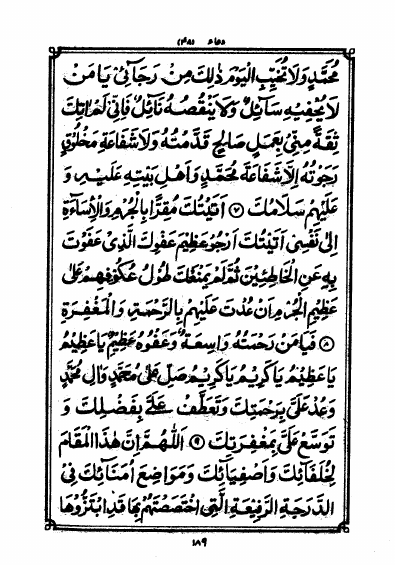 دعاء (۴۸)
مُحَمَّدٍ وَلَا تُخَيِّبِ الْيَوْمَ ذٰلِكَ مِنْ رَجَائِیْ يَا مَنْ
لَا يُحْفِيْهِ سَآئِلٌ وَلَا يَنْقُصُهُ نَآئِلٌ فَاِنِّیْ لَمْ اٰتِكَ
ثِقَةً مِنِّیْ بِعَمَلٍ صَالِحٍ قَدَّمْتُهُ وَلَا شَفَاعَةِ مَخْلُوْقٍ
رَجَوْتُهُ اِلَّا شَفَاعَةَ مُحَمَّدٍ وَاَهْلِ بَيْتِهِ عَلَيْهِ وَ
عَلَيْهِمْ سَلَامُكَ ۷ اَتَيْتُكَ مُقِرًّا بِالْجُرْمِ وَالْاِسَآءَةِ
اِلٰی نَفْسِیْ اَتَيْتُكَ اَرْجُوْ عَظِيْمَ عَفْوِكَ الَّذِیْ عَفَوْتَ
بِهِ عَنِ الْخَاطِئِيْنَ ثُمَّ لَمْ يَمْنَعْكَ طُوْلُ عُكُوْفِهِمْ عَلٰی
عَظِيْمِ الْجُرْمِ اَنْ عُدْتَ عَلَيْهِمْ بِالرَّحْمَةِ وَالْمَغْفِرَةِ
۸ فَيَا مَنْ رَحْمَتُهُ وَاسِعَةٌ وَعَفْوُهُ عَظِيْمٌ يَا عَظِيْمُ
يَا عَظِيْمُ يَا كَرِيْمُ يَا كَرِيْمُ صَلِّ عَلٰی مُحَمَّدٍ وَاٰلِ مُحَمَّدٍ
وَعُدْ عَلَیَّ بِرَحْمَتِكَ وَتَعَطَّفْ عَلَیَّ بِفَضْلِكَ وَ
تَوَسَّعْ عَلَیَّ بِمَغْفِرَتِكَ ۹ اَللّٰهُمَّ اِنَّ هٰذَا الْمَقَامَ
لِخُلَفَآئِكَ وَاَصْفِيَآئِكَ وَمَوَاضِعَ اُمَنَآئِكَ فِی
الدَّرَجَةِ الرَّفِيْعَةِ الَّتِی اخْتَصَصْتَهُمْ بِهَا قَدِ ابْتَزُّوْهَا
۱۸۹